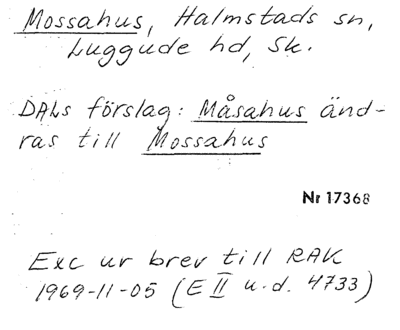 Mossahus, Halmstads sn,
Luggude hd, Sk.
DALs förslag: Måsahus änd-
ras till Mossahus
Nr 17368
Exc ur brev till RAK
1969-11-05 (E II u.d. 4733)